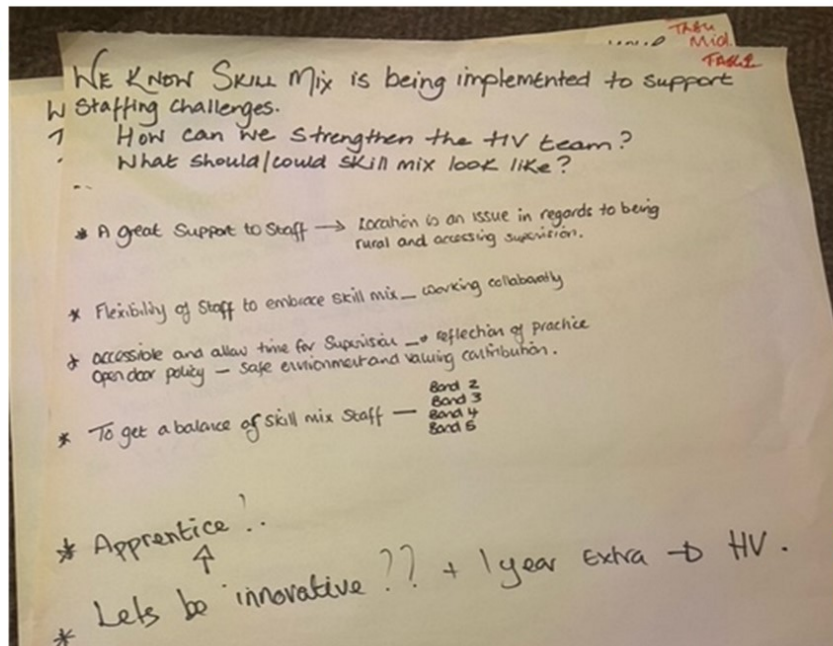 Mid.
TABLE
WE KNOW SKILL Mix is being implemented to support
Staffing challenges.
How can we strengthen the HV team?
What should/could skill mix look like?
* A great Support to Staff → Location is an issue in regards to being
rural and accessing supervision.
* Flexibility of Staff to embrace skill mix - working collaboratly
* accessible and allow time for Supervision → reflection of practice
Open door policy - Safe environment and valuing contribution.
* To get a balance of skill mix Staff -
Band 2
Band 3
Band 4
Band 5
* Apprentice !..
↑
* Lets be innovative ?? + 1 year Extra → HV.
*